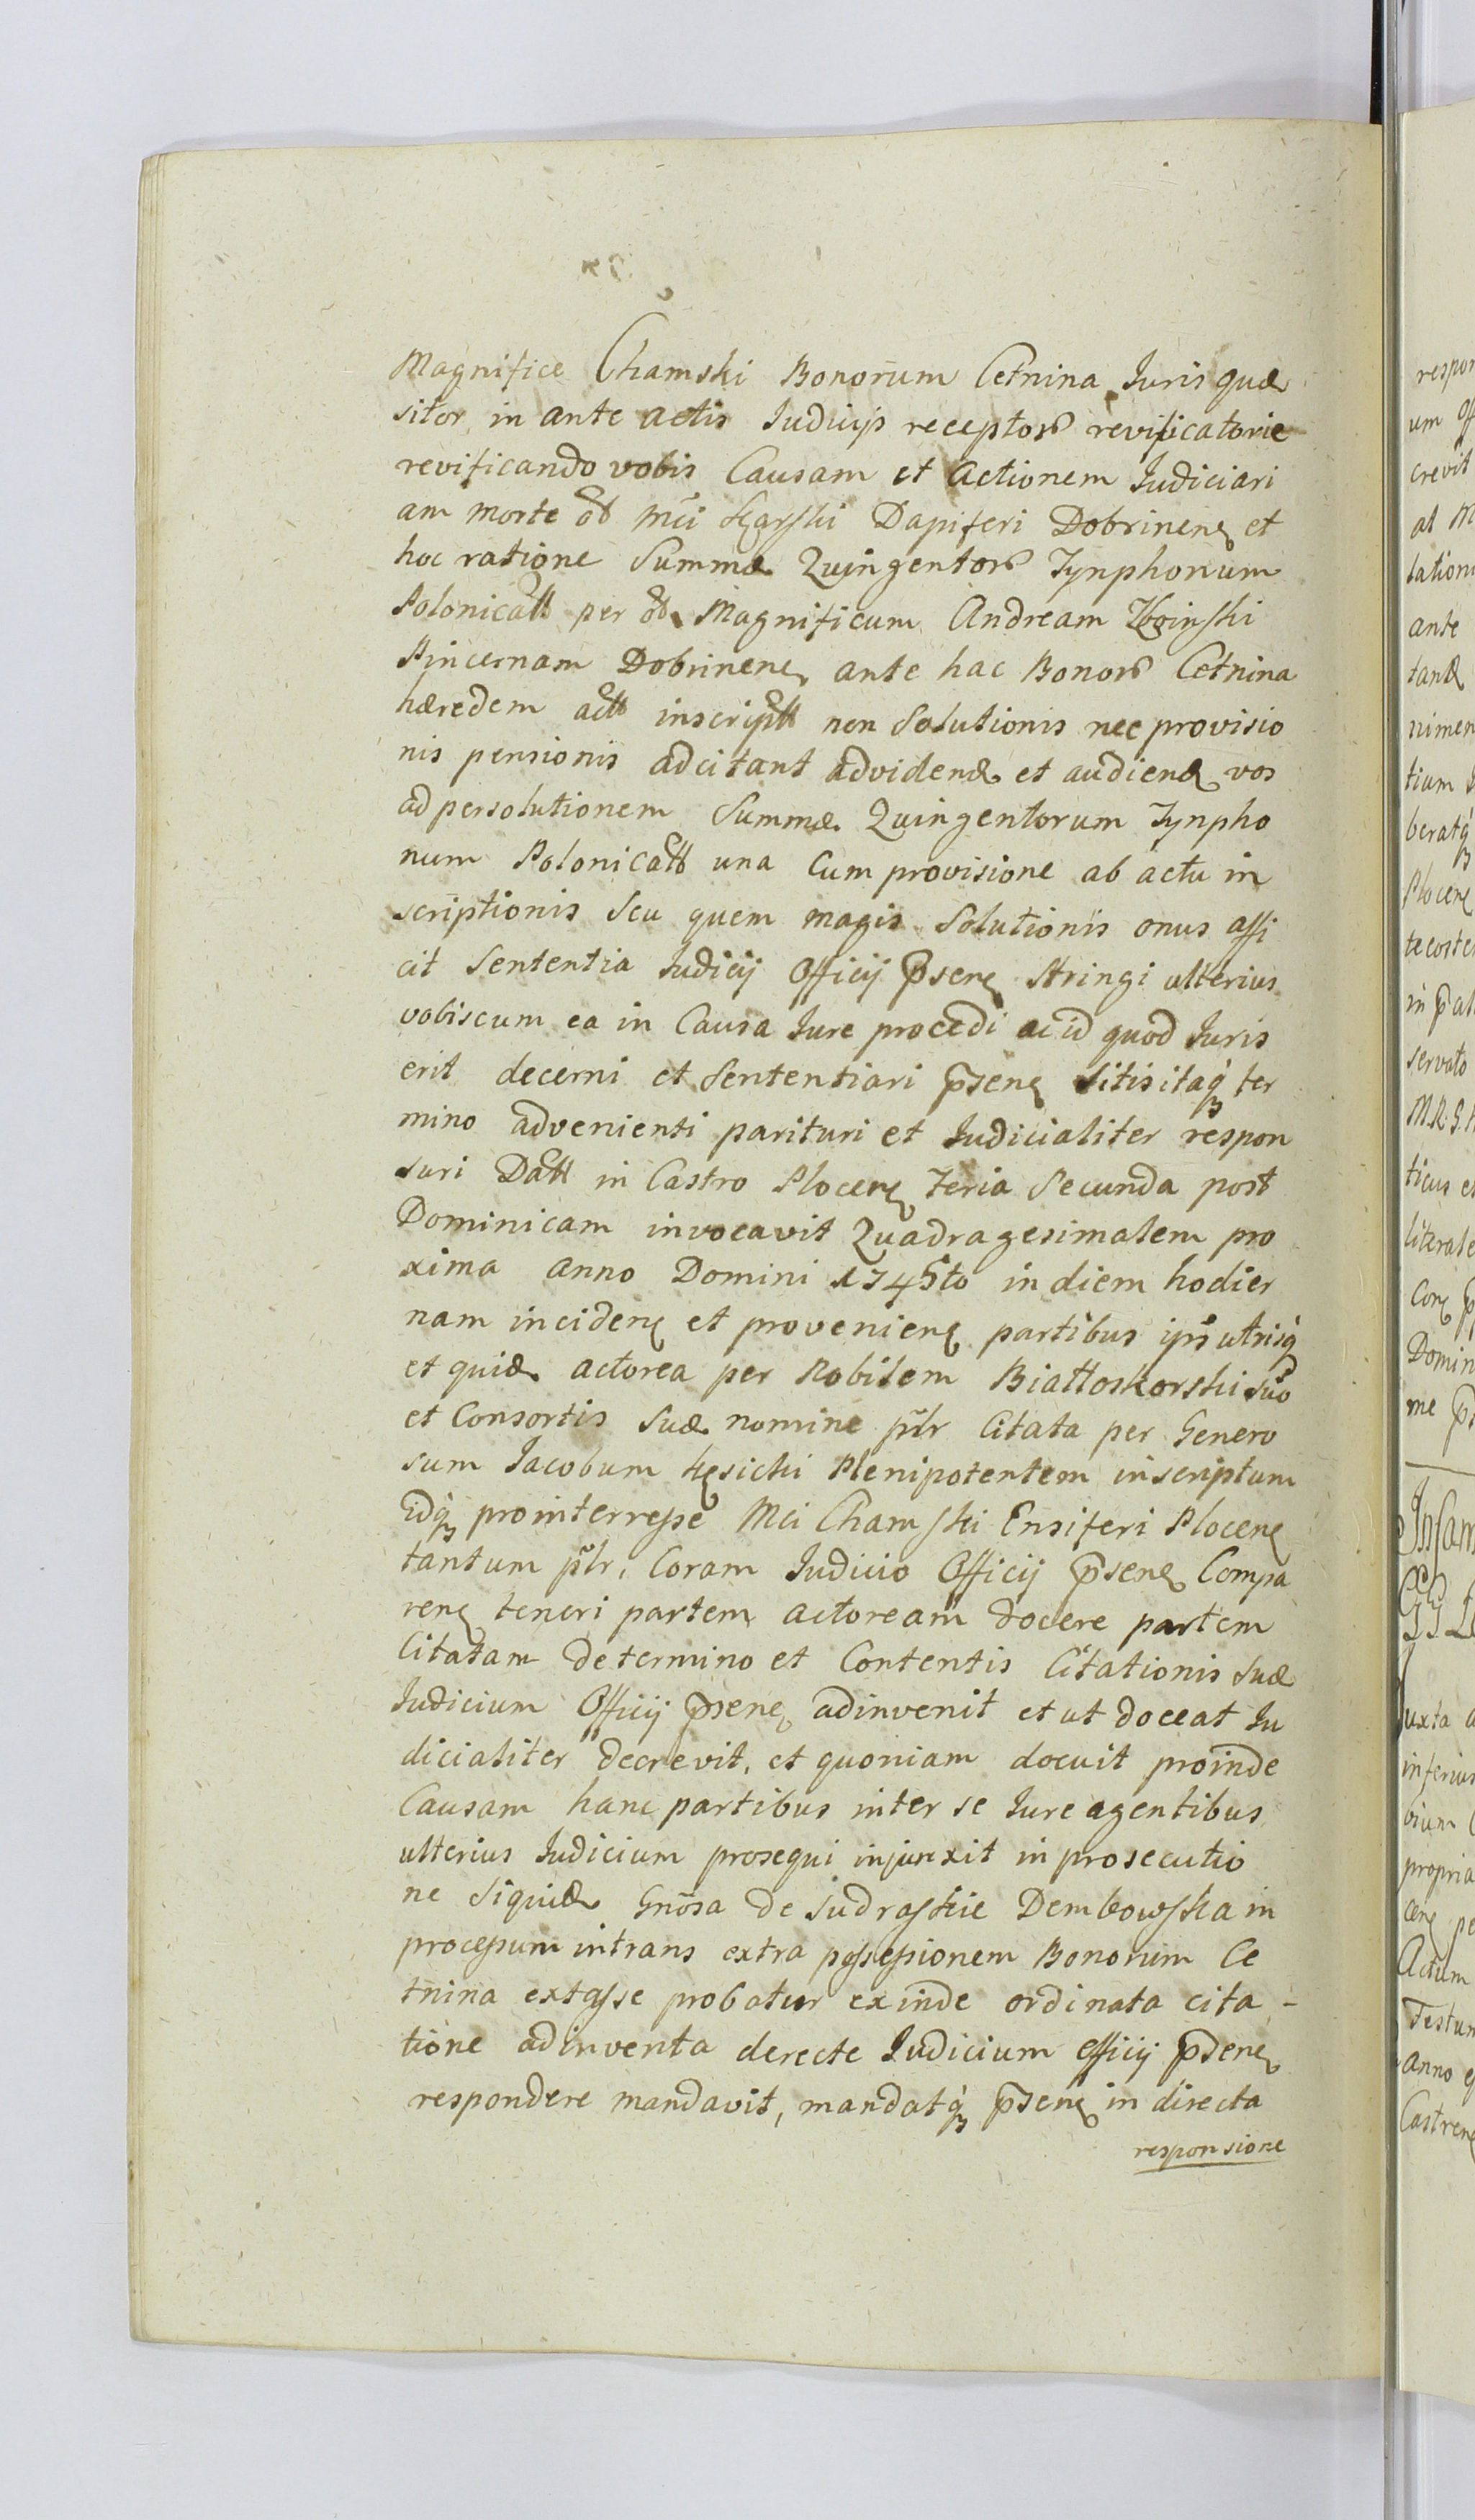 Magnifice Chamski Bonorum Cetnina Iuris quæ
sitor in ante actis Iudicijs receptoꝝ revificatorie
revificando vobis Causam et Actionem Iudiciari
am morte ol͞ Mci Karski Dapiferi Dobrinenẽ et
hoc ratione Summæ Quingentoꝝ Tynphonum
Polonicall per ol͞ Magnificum Andream
Pincernam Dobrinenẽ ante hac Bonoꝝ Cetnina
hæredem actt inscriptt non Solutionis nec provisio
nis pensionis adcitant advidenð et audienð vos
ad persolutionem Summæ Quingentorum Tynpho
num Polonicall una Cum provisione ab actu in
scriptionis Seu quem magis Solutionis onus affi
cit Sententia Iudicij Officij p̄senẽ Stringi ulterius
vobiscum ea in Causa Iure procedi ac id quod Iuris
erit decerni et Sententiari p̄senẽ Sitis itaqꝫ ter
mino advenienti parituri et Iudicialiter respon
suri Datt in Castro Plocenẽ Feria Secunda post
Dominicam invocavit Quadragesimalem pro
xima Anno Domini 1745to in diem hodier
nam incidenẽ et provenienẽ partibus ip̄s utrisq̄
et quidē actorea per Nobilem Biattoskorski Suo
et Consortis Suæ nomine pl̃r Citata per Genero
sum Iacobum Kęsicki Plenipotentem inscriptum
idqꝫ prointerresse Mci Chamski Ensiferi Plocenẽ
tantum pl̃r, Coram Iudicio Officij p̄senẽ Compa
renẽ teneri partem actoream docere partem
Citatam de termino et Contentis Citationis Suæ
Iudicium Officij p̄senẽ adinvenit et ut doceat Iu
dicialiter decrevit, et quoniam docuit proinde
Causam hanc partibus inter se Iure agentibus
ulterius Iudicium prosequi injunxit in prosecutio
ne Siquidē Gn̄osa de Sudraskie Dembowska in
processum intrans extra possessionem Bonorum Ce
tnina extasse probatur exinde ordinata cita-
tione adinventa derecte Iudicium officij p̄senẽ
respondere mandavit, mandatqꝫ p̄senẽ in directa
responsione